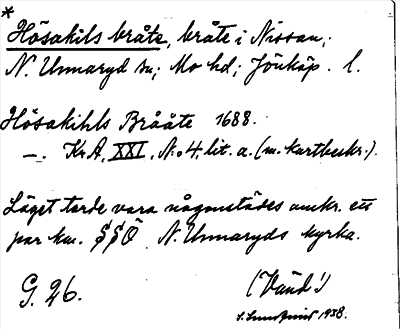 *
Hösakils bråte, bråte i Nissan,;
N. Unnaryd sn; Mo hd; Jönköp. l.
Hösakihls Brååte 1688.
—. Kr.A, XXI, N:o 4, lit. a. (m. kartbeskr.).
Läget torde vara någonstädes omkr. ett
par km. SSÖ N. Unnaryds kyrka.
G. 26.
S. 1938.